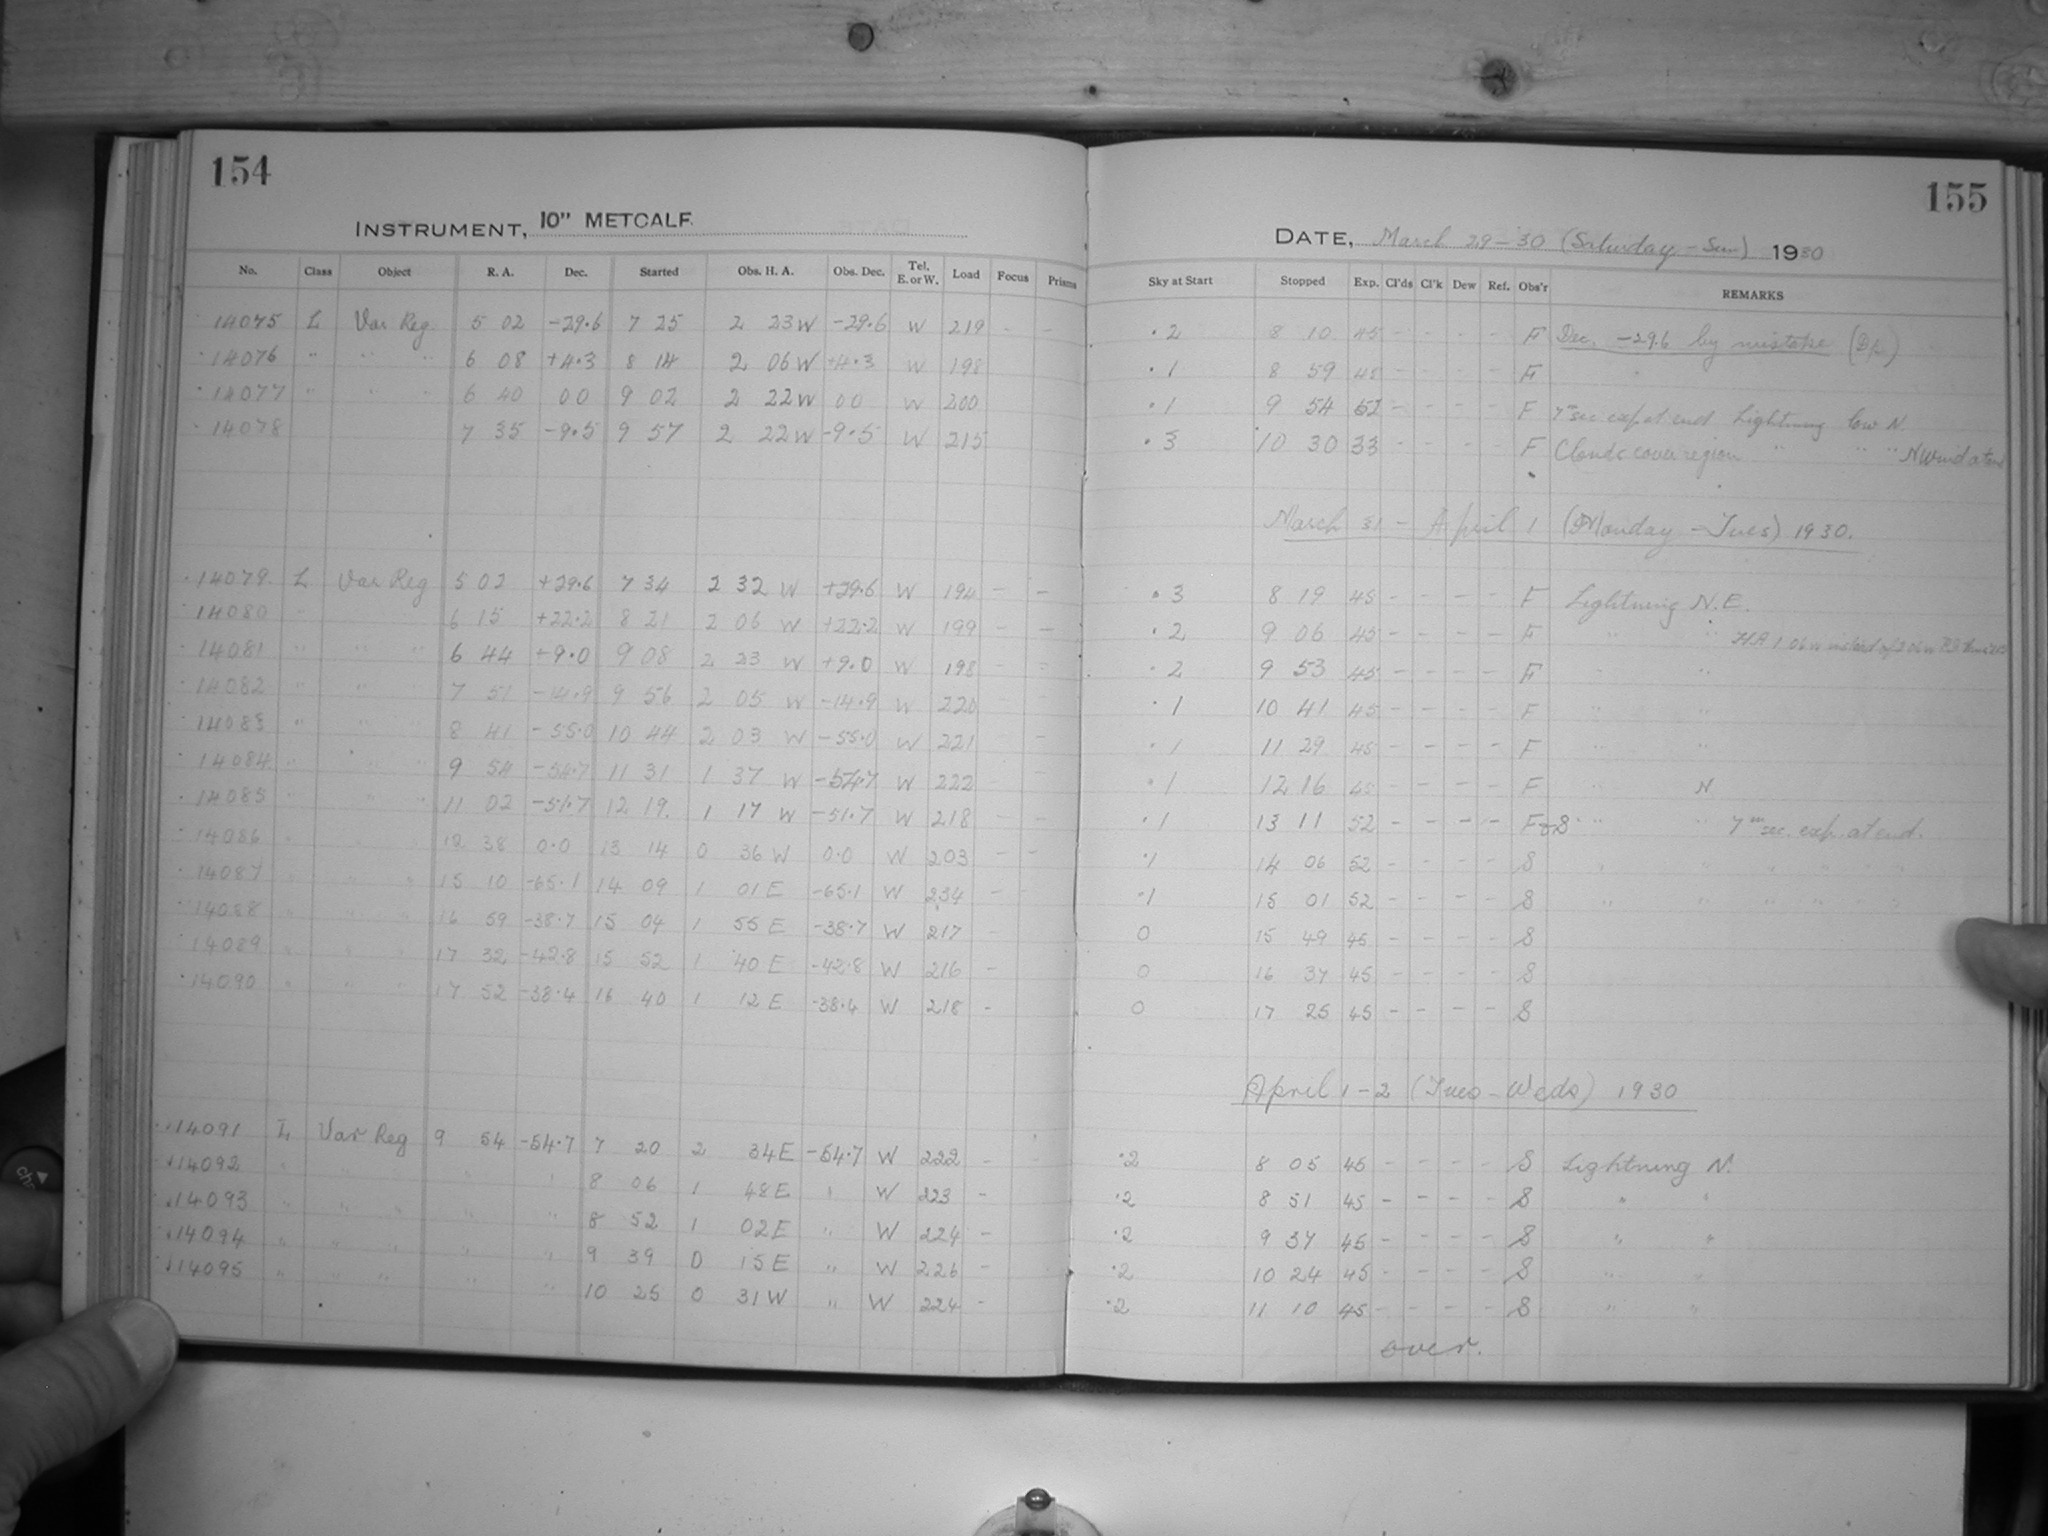 154
INSTRUMENT, 10" METCALF.
No. Class Object R. A. Dec. Started Obs. H. A. Obs. Dec. Tel. E. or W. Load Focus Prisms
14075 L Var Reg. 5 02 -29.6 7 25 2 23 W -29.6 W 219 - -
14076 " " " 6 08 +4.3 8 14 2 06 W +4.3 W 198
14077 " " " 6 40 00 9 02 2 22 W 00 W 200
14078 7 35 -9.5 9 57 2 22 W -9.5 W 215
14079 L Var Reg 5 02 +29.6 7 34 2 32 W +29.6 W 194 - -
14080 " " " 6 15 +22.2 8 21 2 06 W +22.2 W 199 - -
14081 " " " 6 44 +9.0 9 08 2 23 W +9.0 W 198 - -
14082 " " " 7 51 -14.9 9 56 2 05 W -14.9 W 220
14083 " " " 8 41 -55.0 10 44 2 03 W -55.0 W 221 -
14084 " " " 9 54 -54.7 11 31 1 37 W -54.7 W 222
14085 " " " 11 02 -51.7 12 19 1 17 W -51.7 W 218 - -
14086 " " " 12 38 0.0 13 14 0 36 W 0.0 W 203 - -
14087 " " " 15 10 -65.1 14 09 1 01 E -65.1 W 234 - -
14088 " " " 16 59 -38.7 15 04 1 55 E -38.7 W 217 -
14089 " " " 17 32 -42.8 15 52 1 40 E -42.8 W 216 -
14090 " " " 17 52 -38.4 16 40 1 12 E -38.4 W 218 -
14091 L Var Reg 9 54 -54.7 7 20 2 34 E -54.7 W 222 -
14092 " " " " 8 06 1 48 E " W 223 -
14093 " " " " " 8 52 1 02 E " W 224 -
14094 " " " " " 9 39 0 15 E " W 226 -
14095 " " " " " 10 25 0 31 W " W 224 -
155
DATE, March 29-30 (Saturday - Sun) 1930
Sky at Start Stopped Exp. Cl'ds Cl'k Dew Ref. Obs'r REMARKS
.2 8 10 45 - - - - F Dec. -29.6 by mistake
.1 8 59 45 - - - - F
.1 9 54 52 - - - - F 7 m sec. exp at end Lightning low N.
.3 10 30 33 - - - - F Clouds cover region " " " N Wind at end
March 31 - April 1 (Monday - Tues) 1930.
.3 8 19 45 - - - - F Lightning N.E.
.2 9 06 45 - - - - F " " HA 1 06 W instead of 2 06 W
.2 9 53 45 - - - - F " "
.1 10 41 45 - - - - F " "
.1 11 29 45 - - - - F " "
.1 12 16 45 - - - - F " N
.1 13 11 52 - - - - F & S " " 7 m sec. exp. at end.
.1 14 06 52 - - - - S " " " " " "
.1 15 01 52 - - - - S " " " " " "
0 15 49 45 - - - - S
0 16 37 45 - - - - S
0 17 25 45 - - - - S
April 1-2 (Tues - Weds) 1930
.2 8 05 45 - - - - S Lightning N.
.2 8 51 45 - - - - S " "
.2 9 37 45 - - - - S " "
.2 10 24 45 - - - - S " "
.2 11 10 45 - - - - S " "
over.